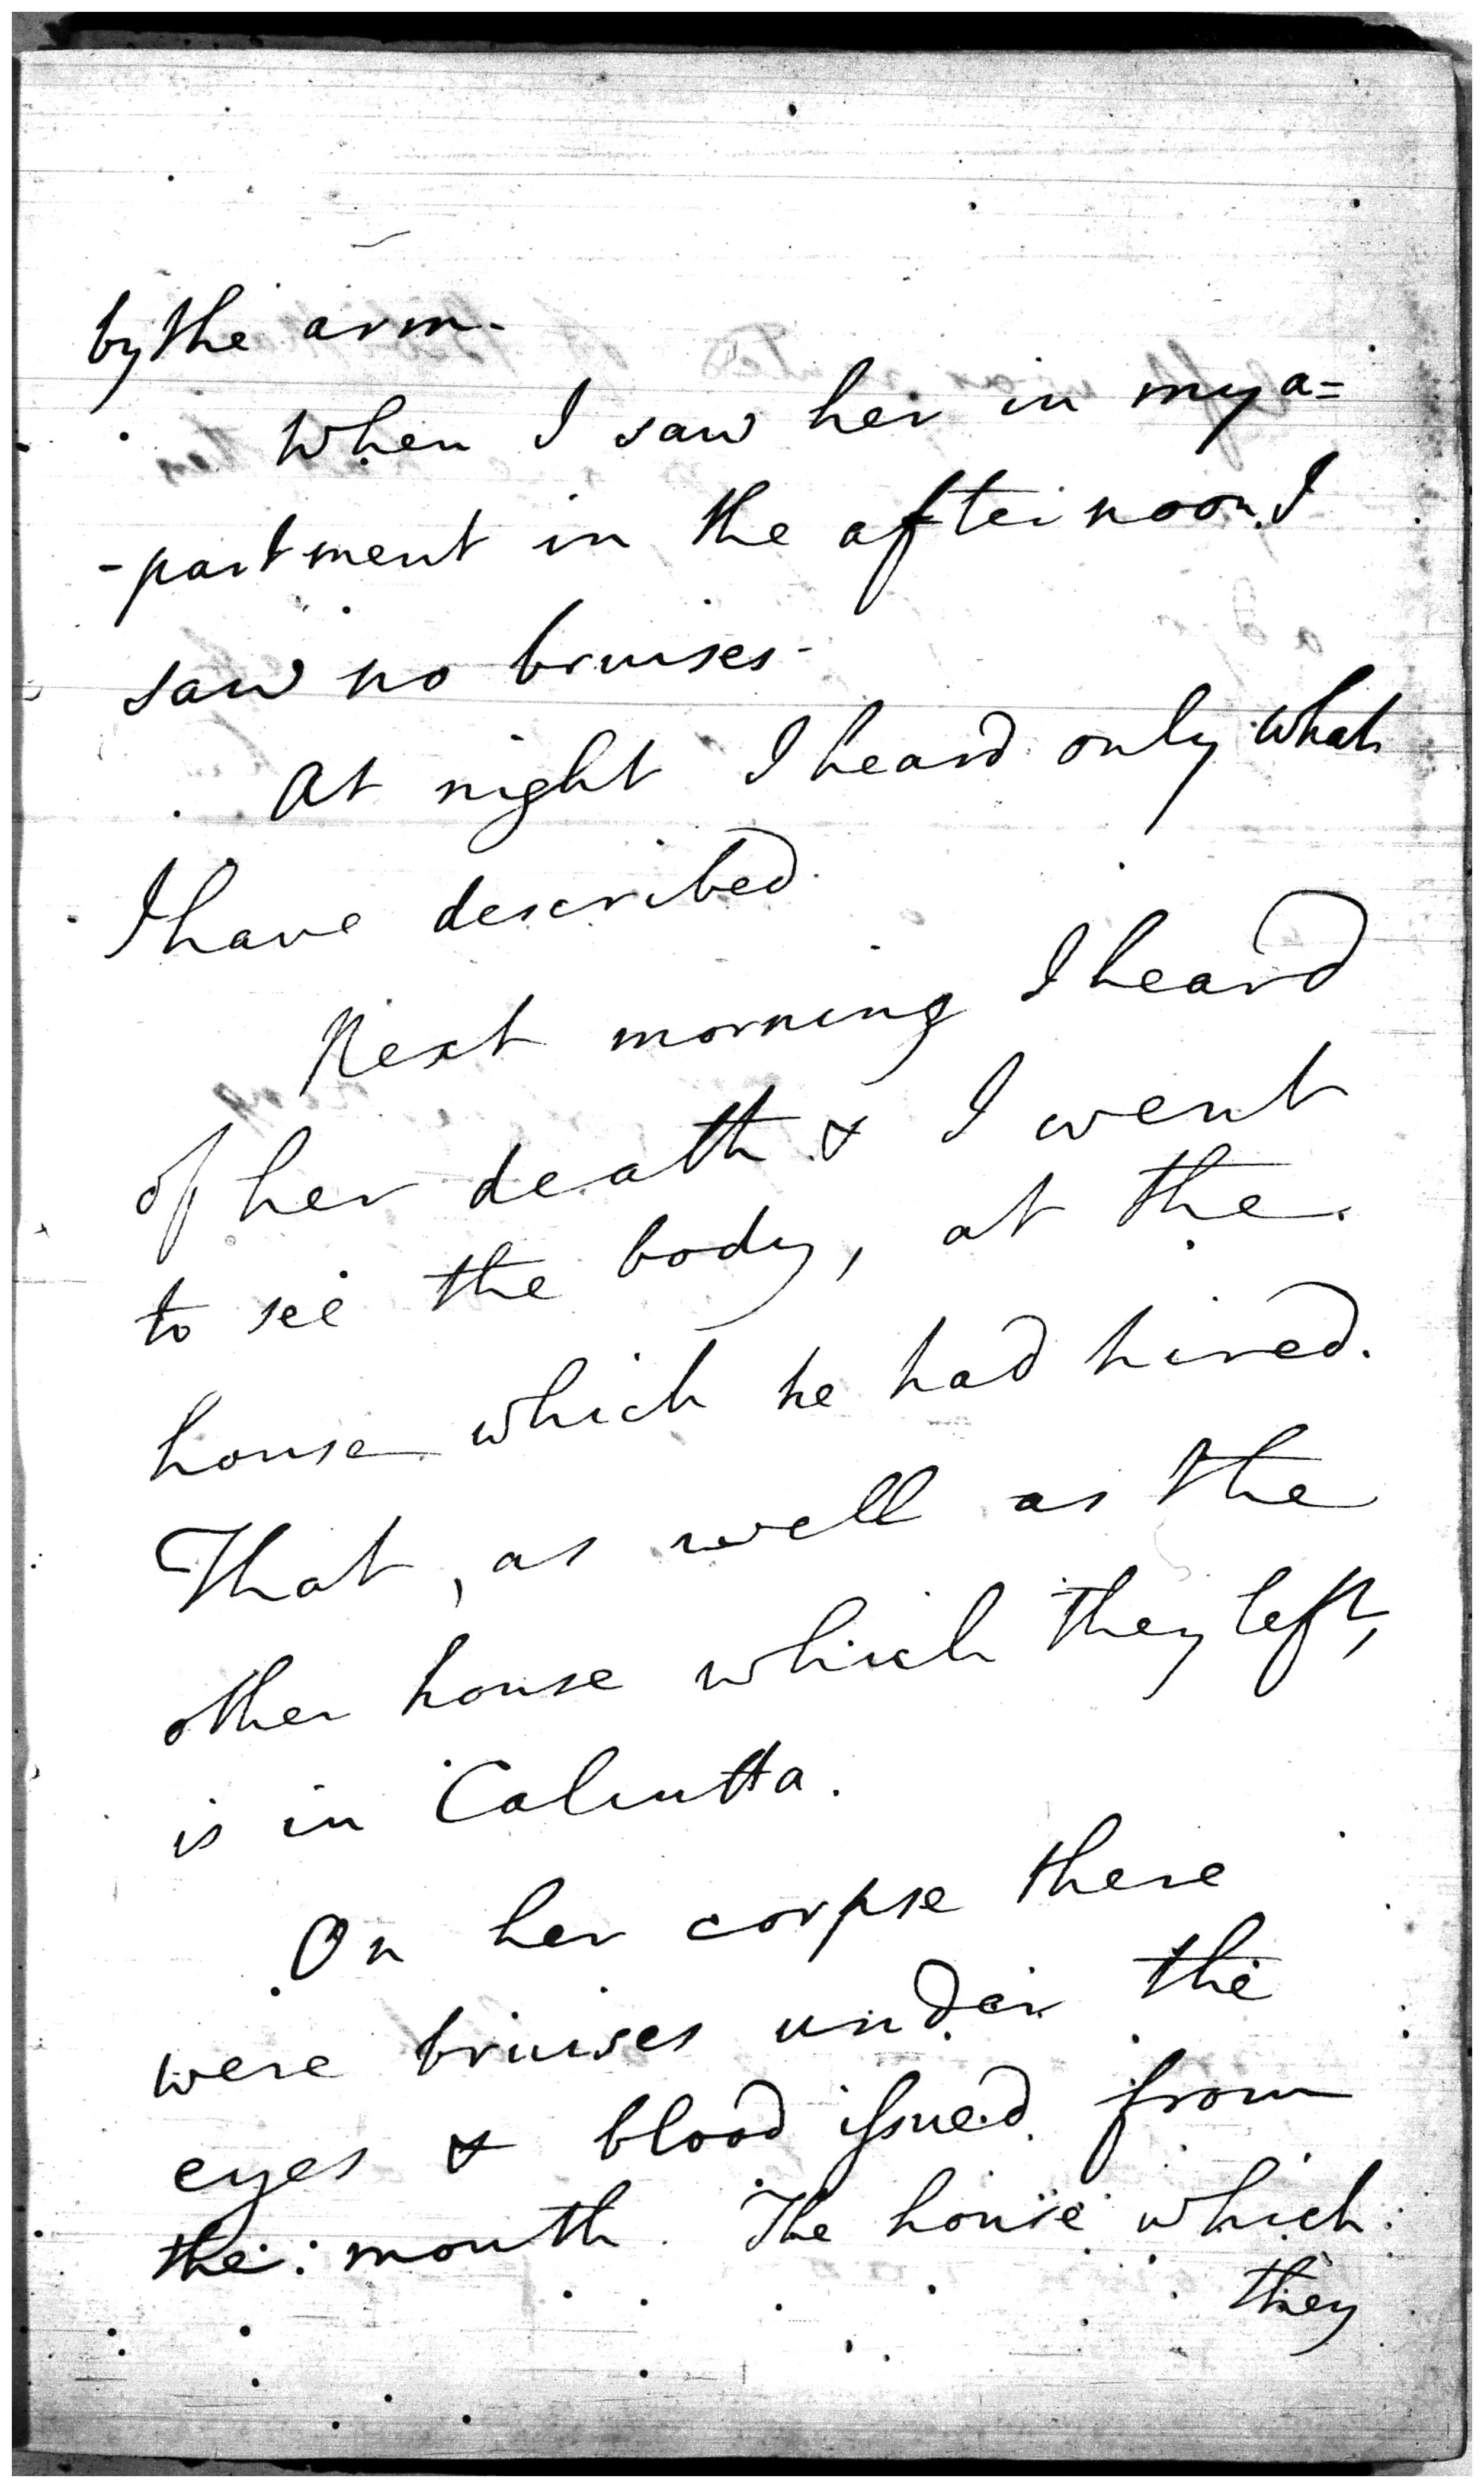 by the arm.
When I saw her in my a=
-partment in the afternoon I
saw no bruises -
At night I heard only what
I have described.
Next morning I heard
of her death & I went
to see the body, at the
house which he had hired.
That, as well as the
other house which they left,
is in Calcutta.
On her corpse there
were bruises under the
eyes & blood issued from
the mouth. The house which
they